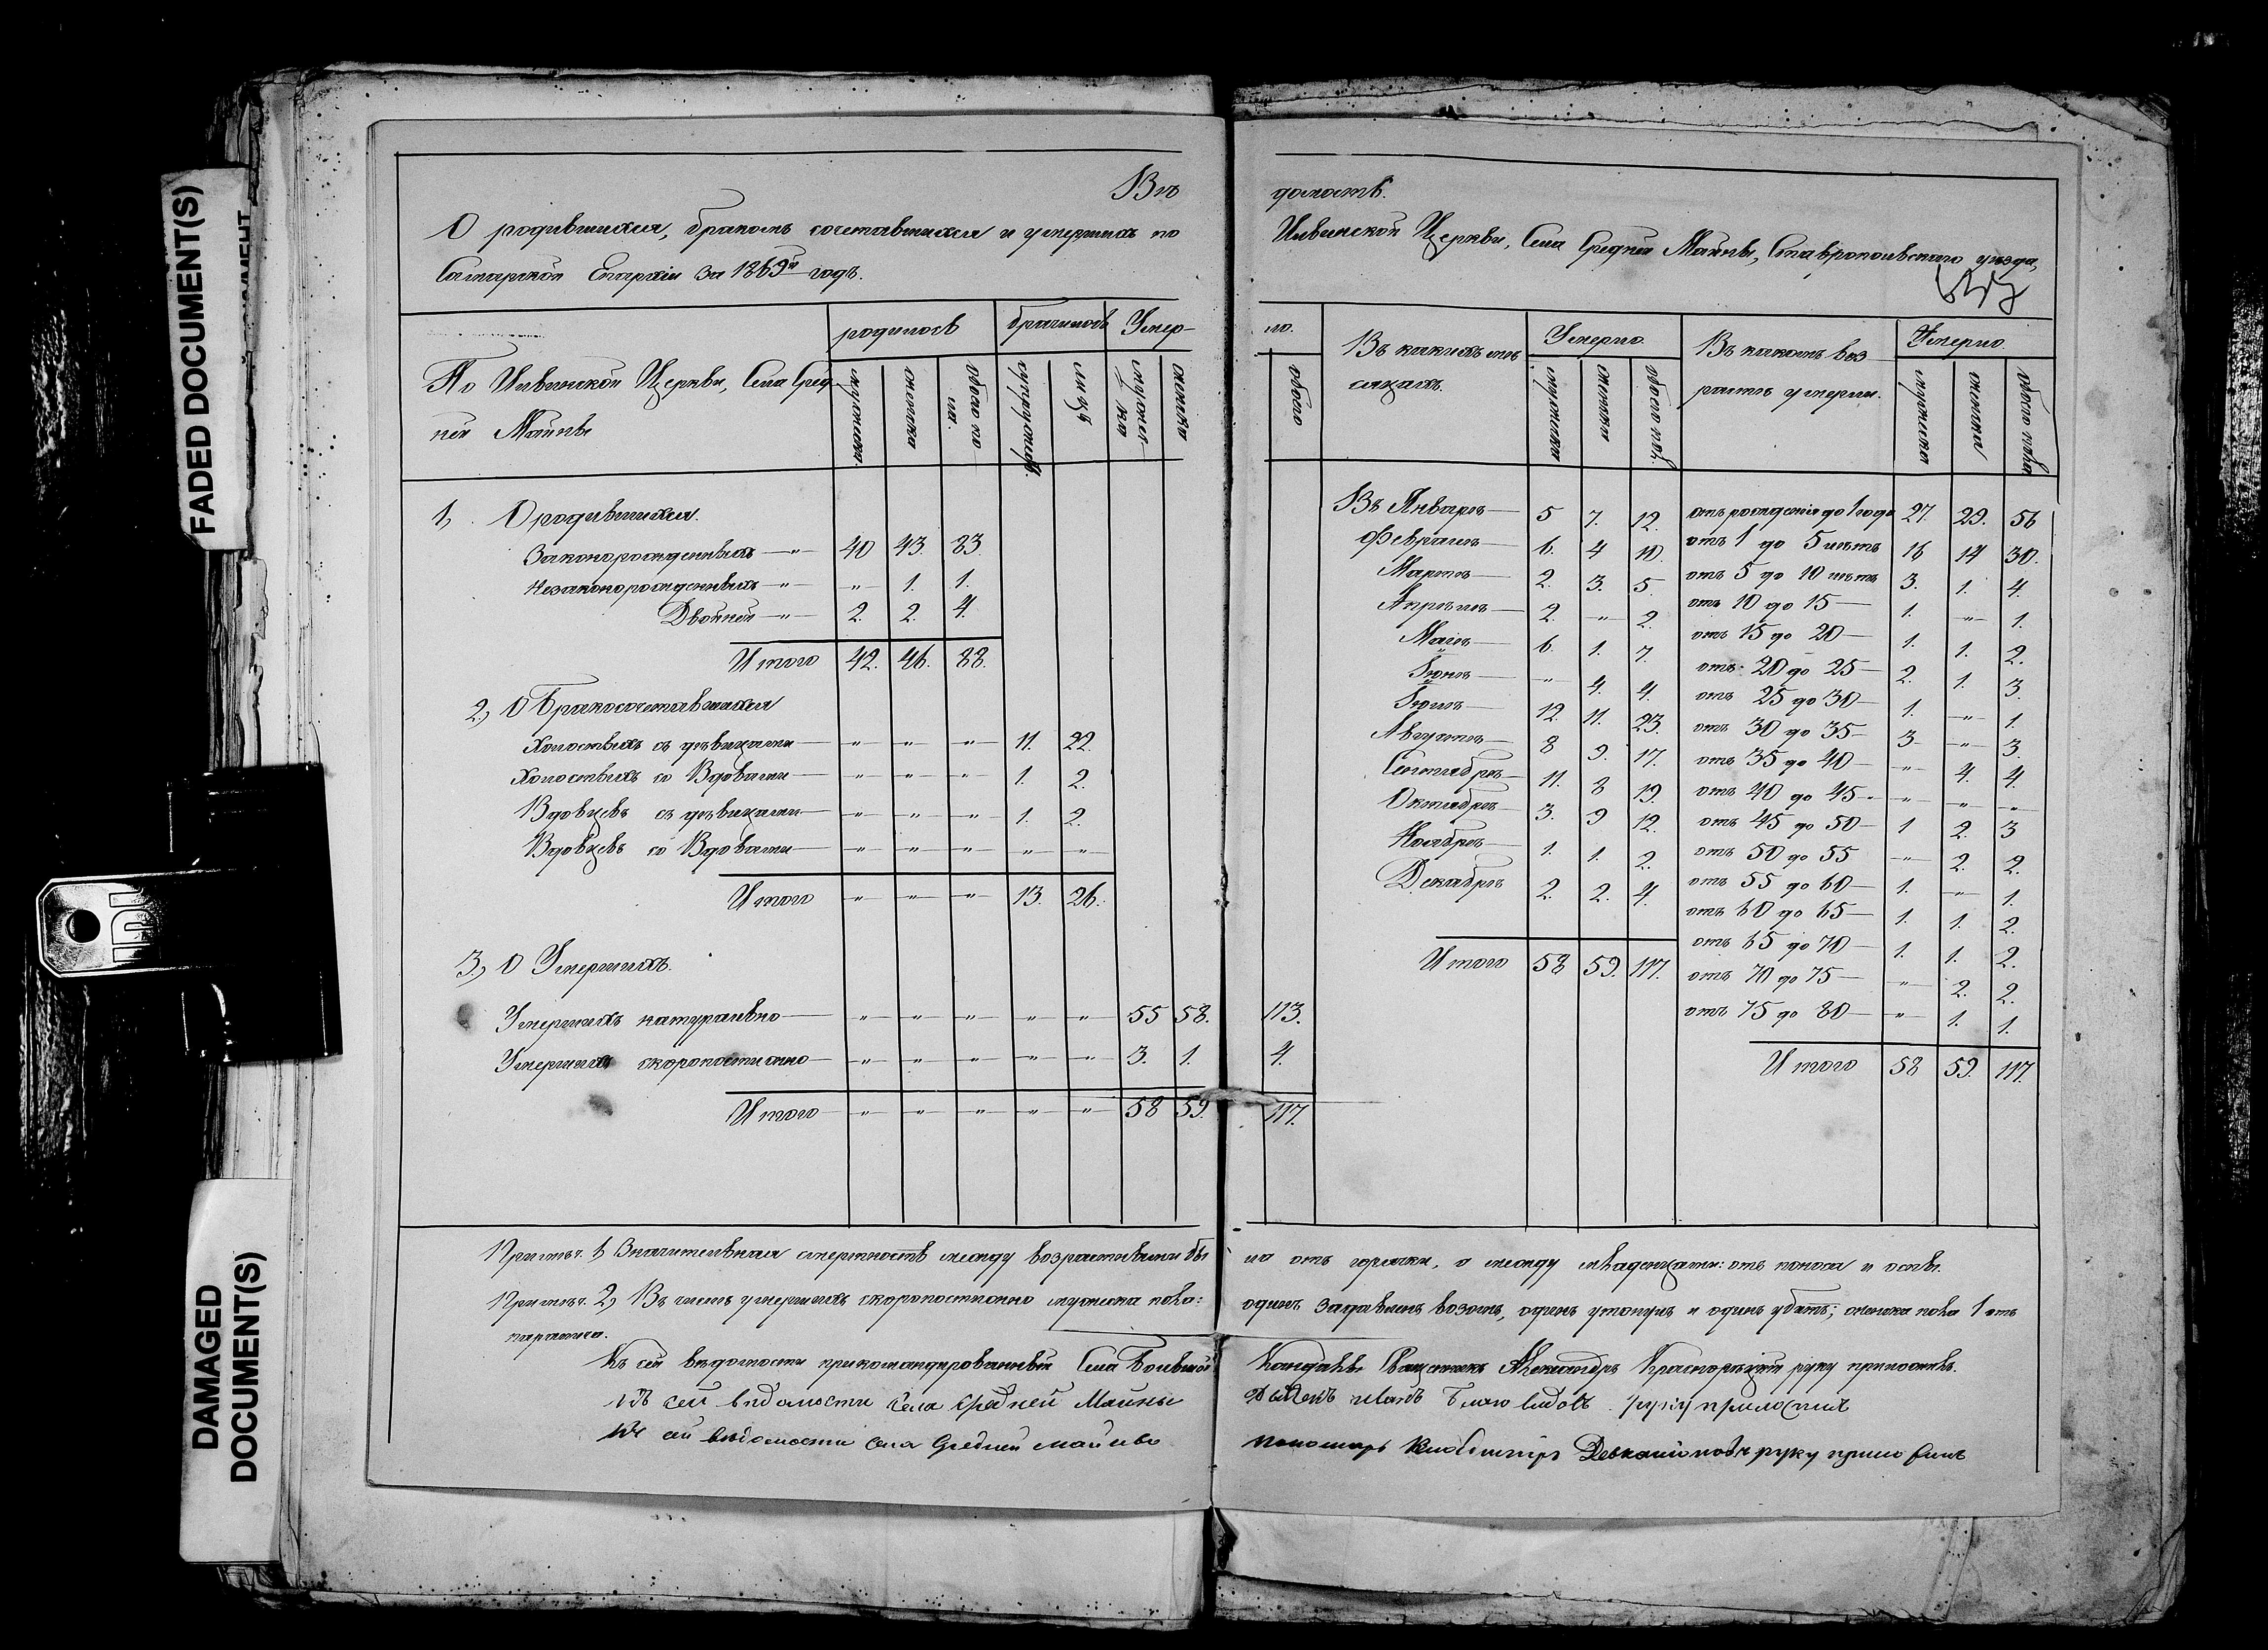 FADED DOCUMENT(S)
DAMAGED
DOCUMENT(S)
Вѣдомость.
О родившихся, бракомъ сочетавшихся и умершихъ по Ильинской Церкви, Села Средней Майны, Ставропольскаго уѣзда,
Самарской Епархіи за 1869й годъ.
По Ильинской Церкви, Села Сред
ней Майны
родилось
мужеска.
женска
обоего по
ла.
брачилось
супружествъ.
лицъ
Умер-
ло.
мужес-
ка
женска
обоего
1, О родившихся.
Законорожденныхъ —"— 40 43. 83.
Незаконорожденныхъ —"— " 1. 1.
Двойней —"— 2. 2. 4.
Итого 42. 46. 88.
2, О Бракосочетавшихся
Холостыхъ съ дѣвицами — " " " 11. 22.
Холостыхъ со Вдовами — " " " 1. 2.
Вдовцевъ съ дѣвицами — " " " 1. 2.
Вдовцевъ со Вдовами — " " " " "
Итого " " " 13. 26.
3, О Умершихъ.
Умершихъ натурально — " " " " " 55 58. 113.
Умершихъ скоропостижно — " " " " " 3. 1. 4.
Итого " " " " " 58 59. 117.
Въ какихъ мѣ
сяцахъ.
Умерло
мужеска
женска
обоего пол.
Въ Январѣ — 5 7. 12.
Февралѣ — 6. 4 10.
Мартѣ — 2. 3. 5.
Апрѣлѣ — 2. " 2.
Маіѣ — 6. 1. 7.
Іюнѣ — " 4. 4.
Іюлѣ — 12. 11. 23.
Августѣ — 8 9. 17.
Сентябрѣ — 11. 8 19.
Октябрѣ — 3. 9 12.
Ноябрѣ — 1. 1. 2.
Декабрѣ 2. 2. 4.
Итого 58 59. 117.
Въ какомъ воз
растѣ умерли.
Умерло
мужеска
женска
обоего пола
отъ рожденія до 1 года 27. 29. 56
отъ 1 до 5 лѣтъ 16 14 30.
отъ 5 до 10 лѣтъ 3. 1. 4.
отъ 10 до 15 — 1. " 1.
отъ 15 до 20 — 1. 1. 2.
отъ 20 до 25 — 2. 1. 3.
отъ 25 до 30 — 1. " 1.
отъ 30 до 35 — 3 " 3.
отъ 35 до 40 — " 4. 4.
отъ 40 до 45 — " " "
отъ 45 до 50 — 1 2. 3
отъ 50 до 55 " 2. 2.
отъ 55 до 60 — 1. " 1.
отъ 60 до 65 — 1. 1. 2.
отъ 65 до 70 — 1. 1. 2.
отъ 70 до 75 — " 2. 2.
отъ 75 до 80 — " 1. 1.
Итого 58 59. 117.
Примѣч. 1, Значительная смертность между возрастными бы ла отъ горячки, а между младенцами: отъ поноса и оспы.
Примѣч. 2, Въ числѣ умершихъ скоропостижно мужеска пола: одинъ задавленъ возомъ, одинъ утонулъ и одинъ убитъ; женска пола 1 отъ
паралича.
Къ сей вѣдомости прикомандированный Села Большой Кандалы Священникъ Александръ Красноръцкій руку приложилъ.
Къ сей вѣдомости села Средней Майны Дьячекъ Иванъ Благовидовъ руку приложилъ
Къ сей вѣдомости села Средней Майны пономарь руку приложилъ